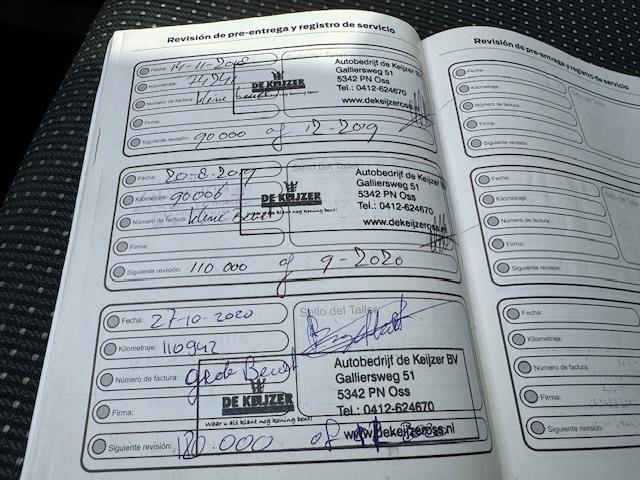 Revisión de pre-entrega y registro de servicio
Fecha: 14-11-2018
Kilometraje: 74241
Número de factura: kleine
Firma:
Siguiente revisión: 90 000 of 12-2019
DE KEIJZER
Autobedrijf de Keijzer BV
Galliersweg 51
5342 PN Oss
Tel.: 0412-624670
www.dekeijzeross.nl
Fecha: 20-8-2019
Kilometraje: 90006
Número de factura: kleine Beurt
Firma:
Siguiente revisión: 110 000 of 9-2020
Sello del Taller
DE KEIJZER
Waar u als klant nog koning bent!
Autobedrijf de Keijzer BV
Galliersweg 51
5342 PN Oss
Tel.: 0412-624670
www.dekeijzeross.nl
Fecha: 27-10-2020
Kilometraje: 110942
Número de factura: grote Beurt
Firma:
Siguiente revisión: 120.000 of
Sello del Taller
DE KEIJZER
Waar u als klant nog koning bent!
Autobedrijf de Keijzer BV
Galliersweg 51
5342 PN Oss
Tel.: 0412-624670
www.dekeijzeross.nl
Revisión de pre-entrega y registro de servicio
Fecha:
Kilometraje:
Número de factura:
Firma:
Siguiente revisión:
Fecha:
Kilometraje:
Número de factura:
Firma:
Siguiente revisión:
Fecha:
Kilometraje:
Número de factura:
Firma:
Siguiente revisión: